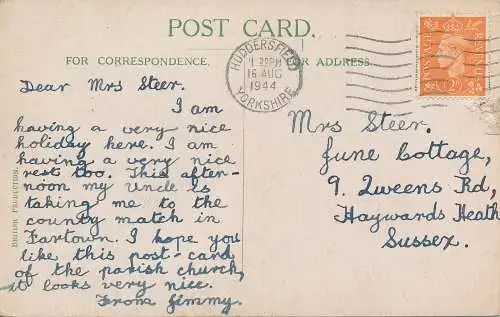 POST CARD.
FOR CORRESPONDENCE.
FOR ADDRESS.
HUDDERSFIELD
16 AUG
1944
YORKSHIRE
POSTAGE
REVENUE
Dear Mrs Steer.
I am
having a very nice
holiday here. I am
having a very nice
rest too. This after-
noon my Uncle is
taking me to the
county match in
Fartown. I hope you
like this post-card
of the parish church,
it looks very nice.
From Jimmy.
Mrs Steer.
June Cottage,
9. Queens Rd,
Haywards Heath
Sussex.
BRITISH PRODUCTION.